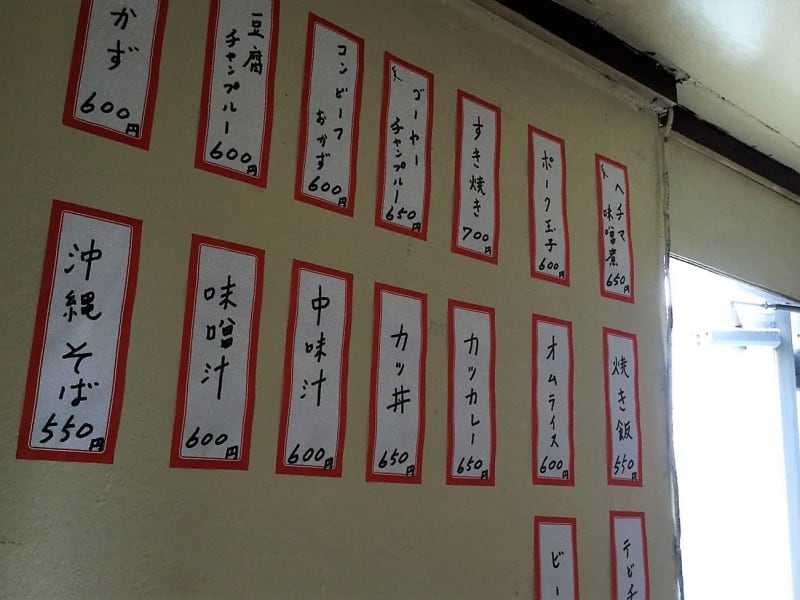 ヘチマ
味噌煮
650円
ポーク玉子
600円
すき焼き
700円
ゴーヤー
チャンプルー
650円
コンビーフ
おかず
600円
豆腐
チャンプルー
600円
かず
600円
焼き飯
550円
オムライス
600円
カツカレー
650円
カツ丼
650円
中味汁
600円
味噌汁
600円
沖縄そば
550円
テビチ
ビー